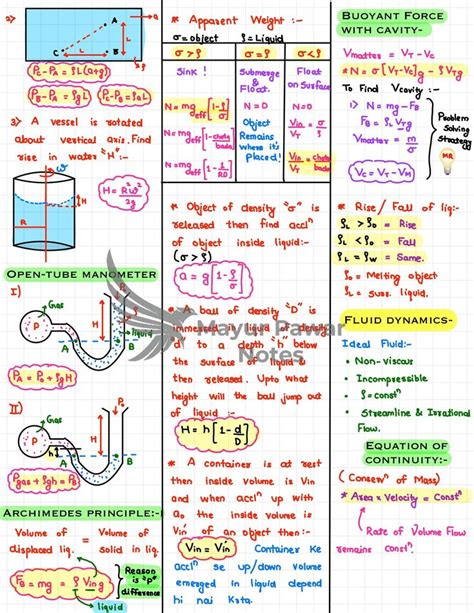 2)
A
C
B
L
L
a
P_C - P_A = ρL(a+g)
P_B - P_A = ρgL
P_C - P_B = ρaL
3) A vessel is rotated
about vertical axis. Find
rise in water "H" :-
ω
H
R
H = R²ω²/2g
OPEN-TUBE MANOMETER
I)
Gas
P
H
A
B
liquid
P_A = P_0 + ρgH
II)
Gas
P
H
h
A
B
liquid
P_gas + ρgh = P_B
ARCHIMEDES PRINCIPLE:-
Volume of = Volume of
displaced liq. solid in liq.
F_B = mg = ρ V_in g
liquid
Reason
is "P"
difference
* Apparent Weight :-
σ = object ρ = Liquid
σ > ρ
σ = ρ
σ < ρ
Sink !
N = mg_eff [1 - ρ/σ]
N = mg_eff
N = mg [1 - ρ/RD]
Submerge
& Float
N = 0
Object
Remains
where it's
Placed!
Float
on Surface
N = 0
V_in/V_T = σ/ρ
V_in/V_T
* Object of density "σ" is
released then find accⁿ
of object inside liquid:-
(σ > ρ)
a = g [1 - ρ/σ]
* A ball of density "D" is
immersed in liquid of density
d to a depth "h" below
the surface of liquid &
then released. Upto what
height will the ball jump out
of liquid :-
H = h [1 - d/D]
* A container is at rest
then inside volume is Vin
and when accⁿ up with
a₀ the inside volume is
V'in of an object then:-
Vin = V'in
Container ke
accⁿ se up/down volume
emerged in liquid depend
hi nai Krta.
Mayur Pawar
Notes
BUOYANT FORCE
WITH CAVITY-
V_matter = V_T - V_C
* N = σ[V_T - V_C]g - ρV_T g
To Find V_cavity :-
i) N = mg - F_B
F_B = ρ_L V_T g
V_matter = m/σ
V_C = V_T - V_M
Problem
Solving
Strategy
MR
* Rise / Fall of liq:-
ρ_L > ρ_0 = Rise
ρ_L < ρ_0 = Fall
ρ_L = ρ_W = Same.
ρ_0 = Melting object
ρ_L = Surr. liquid.
FLUID DYNAMICS-
Ideal Fluid:-
• Non-viscous
• Incompressible
• ρ = constⁿ
• Streamline & Irrational
Flow.
EQUATION OF
CONTINUITY:-
( Consevⁿ of Mass)
* Area × Velocity = Constⁿ
Rate of Volume Flow
remains constⁿ.